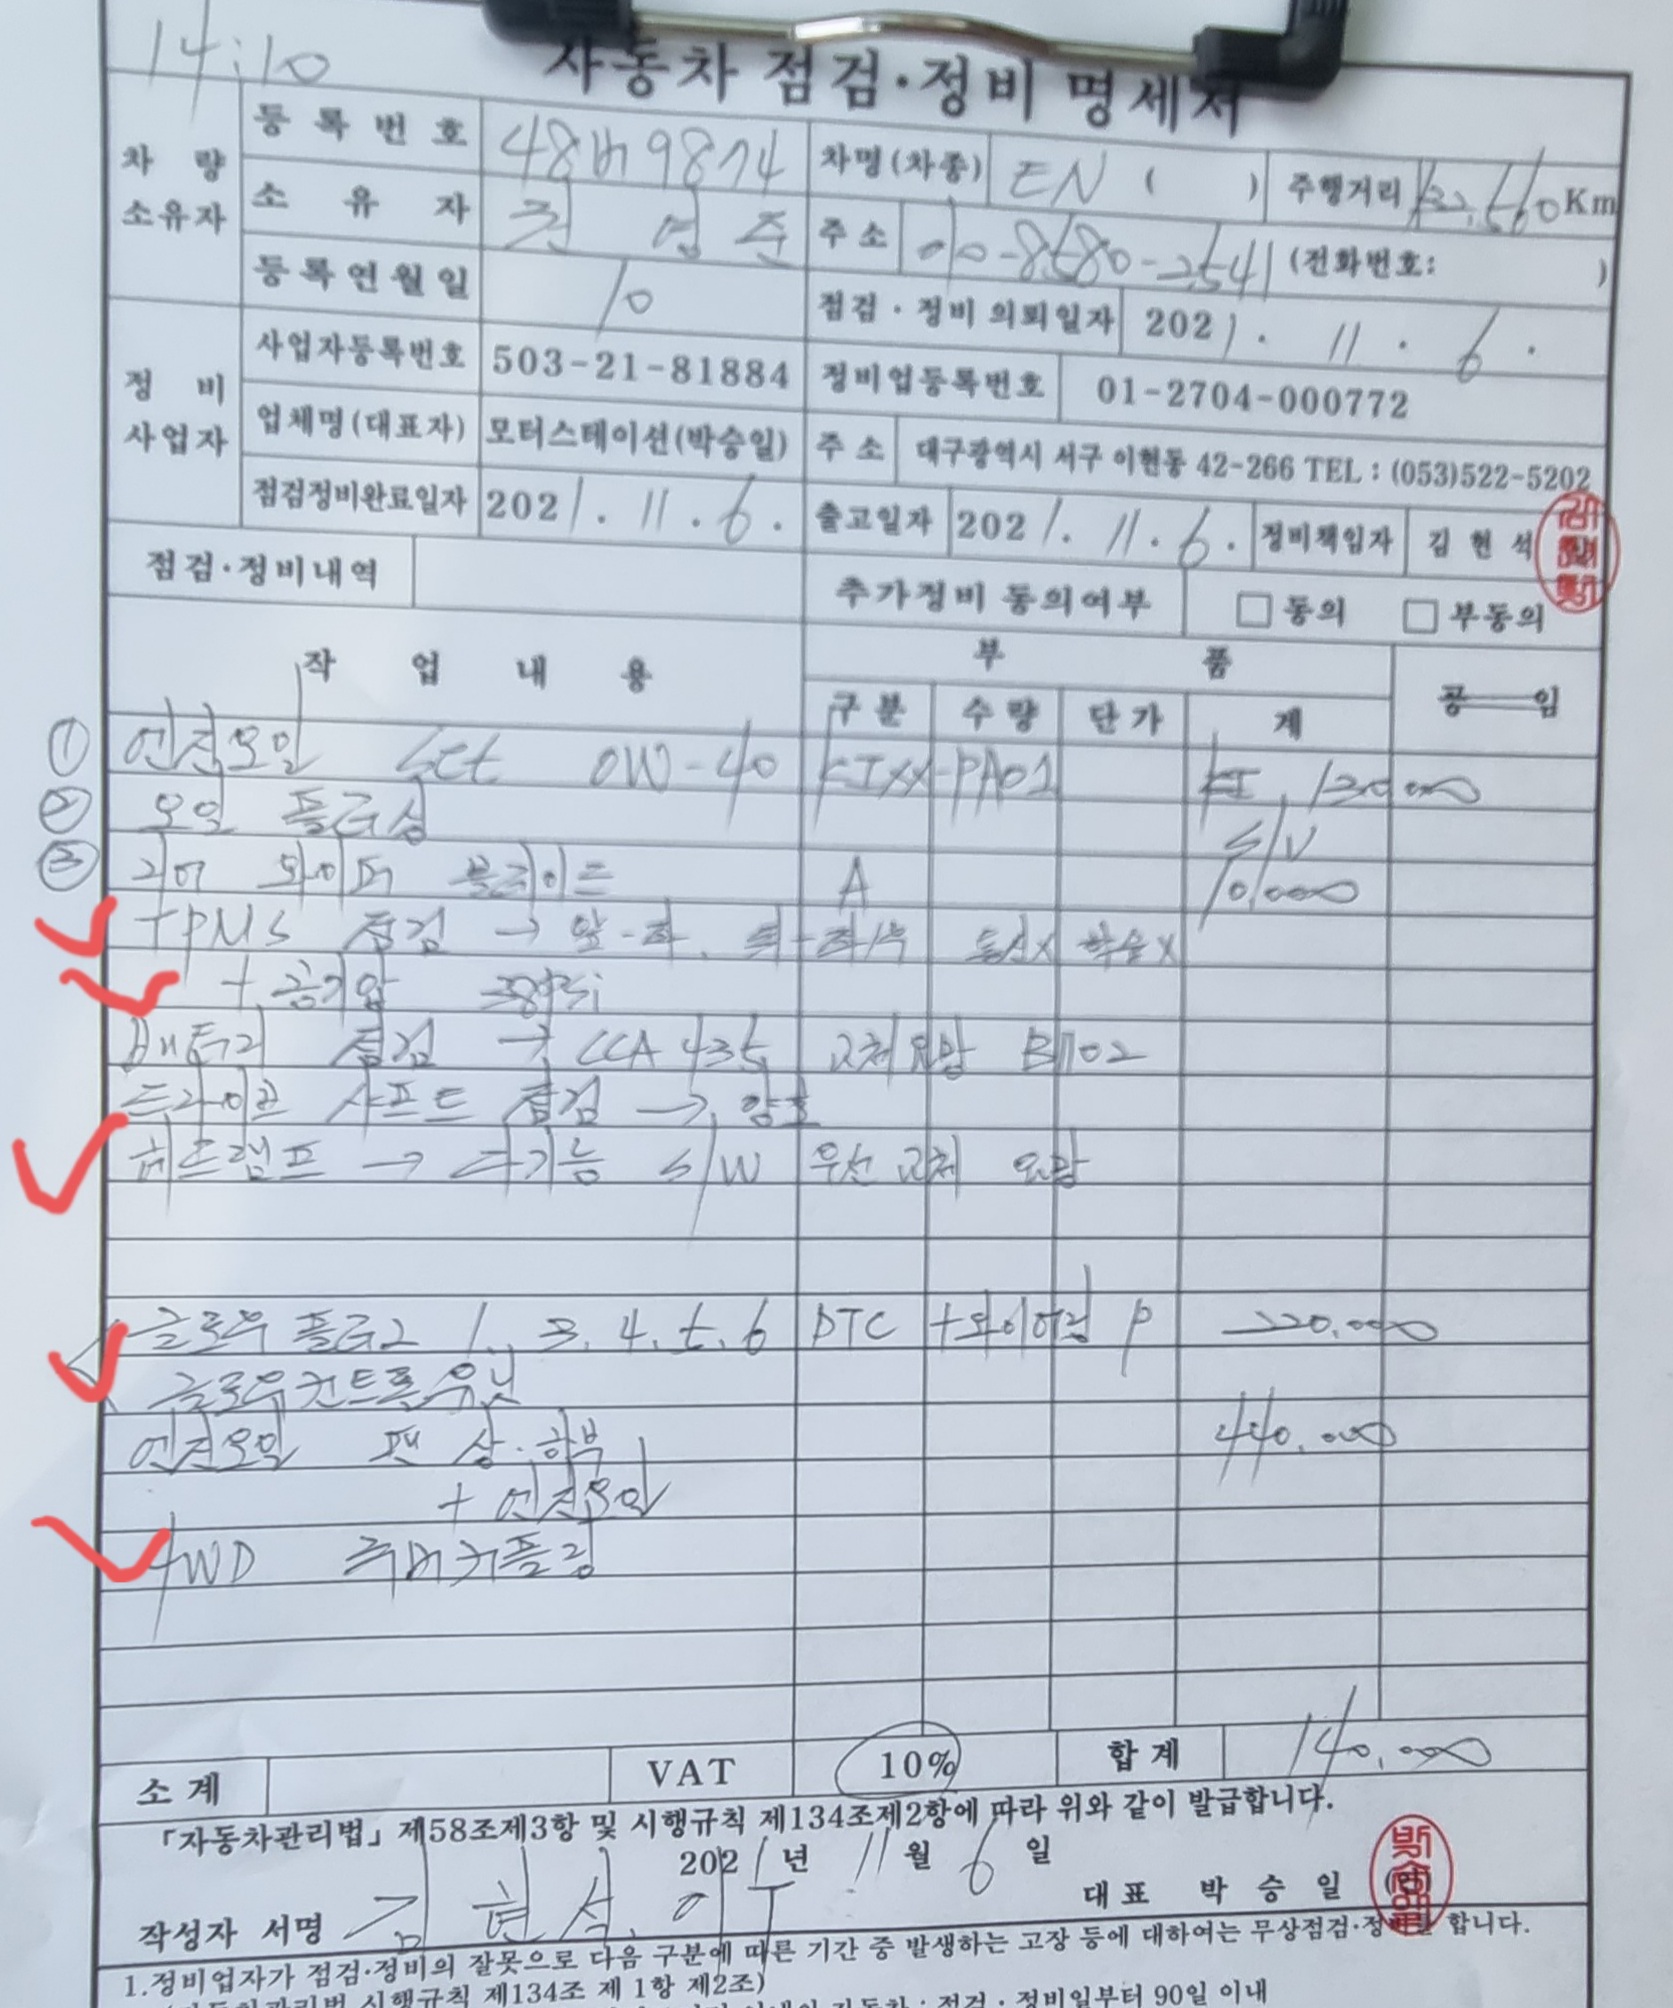 14:10
자동차 점검·정비 명세서
차량 소유자
등록번호 48버9874 차명(차종) EN ( ) 주행거리 Km
소유자 권 영 준 주소 010-8580-2541 (전화번호: )
등록연월일 10 점검·정비 의뢰일자 2021. 11. 6.
정비 사업자
사업자등록번호 503-21-81884 정비업등록번호 01-2704-000772
업체명(대표자) 모터스테이션(박승일) 주소 대구광역시 서구 이현동 42-266 TEL : (053)522-5202
점검정비완료일자 2021. 11. 6. 출고일자 2021. 11. 6. 정비책임자 김현석
점검·정비내역 추가정비 동의여부 □ 동의 □ 부동의
작업내용 부품 공임
구분 수량 단가 계
① 엔진오일 set 0W-40 KIXX-PA01 130,000
② 오일 플러싱 S/V
③ 리어 와이퍼 블레이드 A 10,000
TPMS 점검 → 앞-좌, 뒤-좌/우 통신X 학습X
+ 공기압 38psi
배터리 점검 → CCA 435 교체요망 BT702
드라이브 샤프트 점검 → 양호
헤드램프 → 다기능 S/W 우선 교체 요망
글로우 플러그 1, 3, 4, 5, 6 DTC +와이어링 P 220,000
글로우컨트롤유닛
엔진오일 팬 상·하부 440,000
+ 엔진오일
4WD 러버커플링
소계 VAT 10% 합계 140,000
「자동차관리법」 제58조제3항 및 시행규칙 제134조제2항에 따라 위와 같이 발급합니다.
2021년 11월 6일
대표 박승일 (인)
작성자 서명 김현석
1.정비업자가 점검·정비의 잘못으로 다음 구분에 따른 기간 중 발생하는 고장 등에 대하여는 무상점검·정비를 합니다.
시행규칙 제134조 제 1항 제2조)
점검·정비일부터 90일 이내